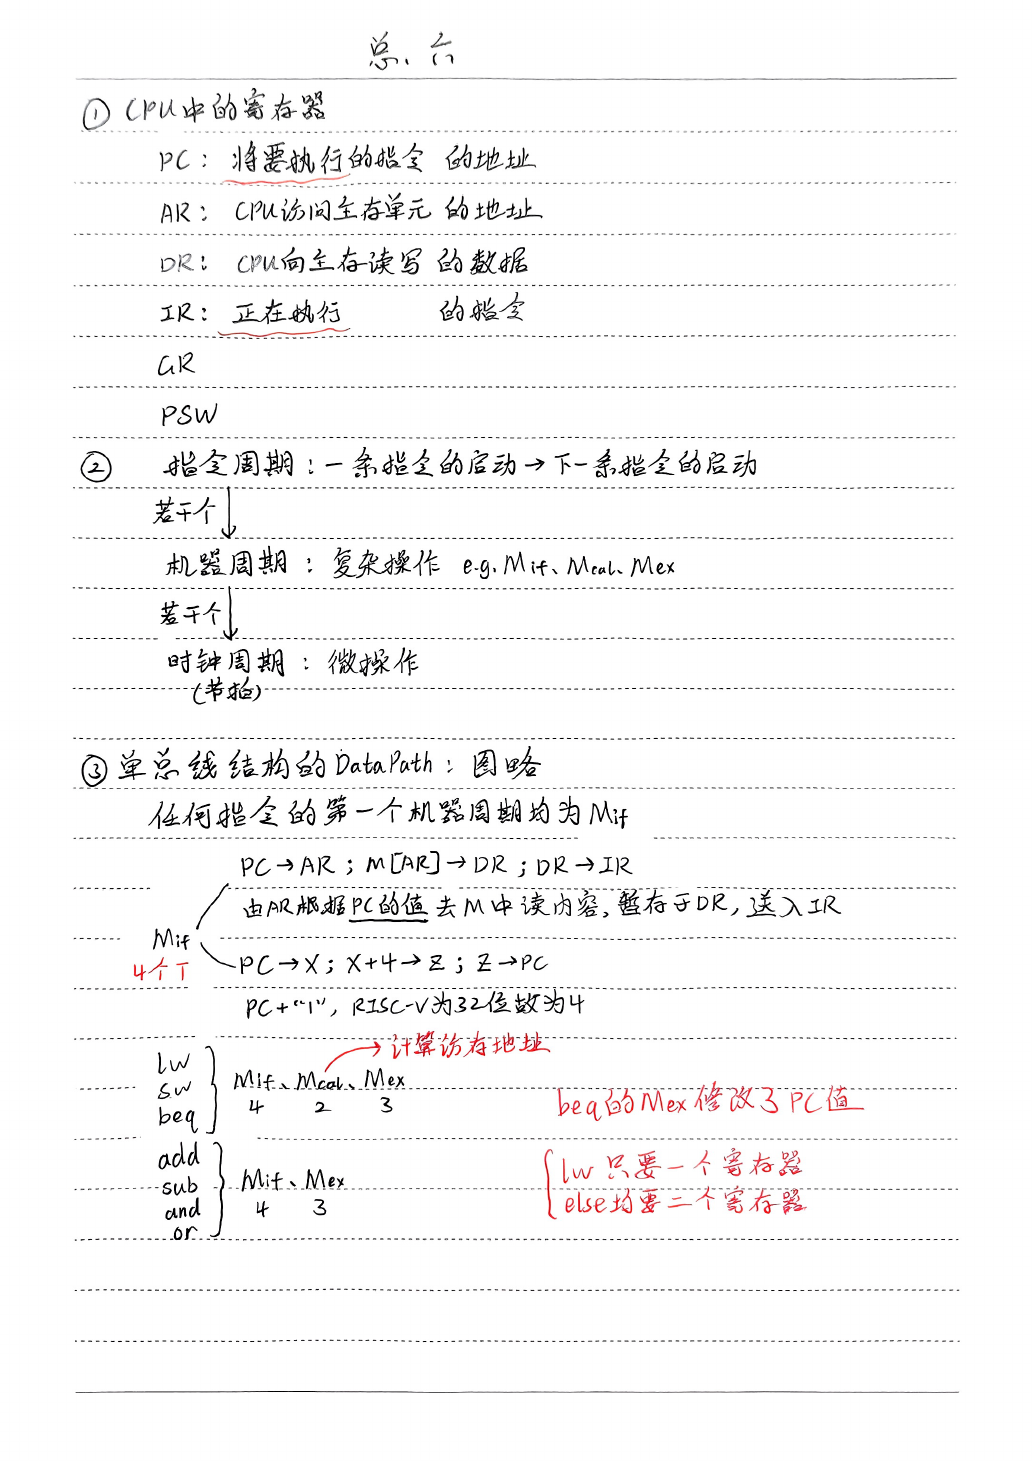 总、六
① CPU中的寄存器
PC：将要执行的指令 的地址
AR：CPU访问主存单元 的地址
DR：CPU向主存读写 的数据
IR：正在执行 的指令
GR
PSW
② 指令周期：一条指令的启动→下一条指令的启动
若干个
机器周期：复杂操作 e.g. Mif、Mcal、Mex
若干个
时钟周期：微操作
(节拍)
③ 单总线结构的DataPath：图略
任何指令的第一个机器周期均为Mif
PC→AR；M[AR]→DR；DR→IR
由AR根据PC的值去M中读内容，暂存于DR，送入IR
Mif
4个T
PC→X；X+4→Z；Z→PC
PC+“1”，RISC-V为32位数为4
→计算访存地址
lw
sw
beq
Mif、Mcal、Mex
4 2 3
beq的Mex修改了PC值
add
sub
and
or
Mif、Mex
4 3
lw 只要一个寄存器
else均要二个寄存器